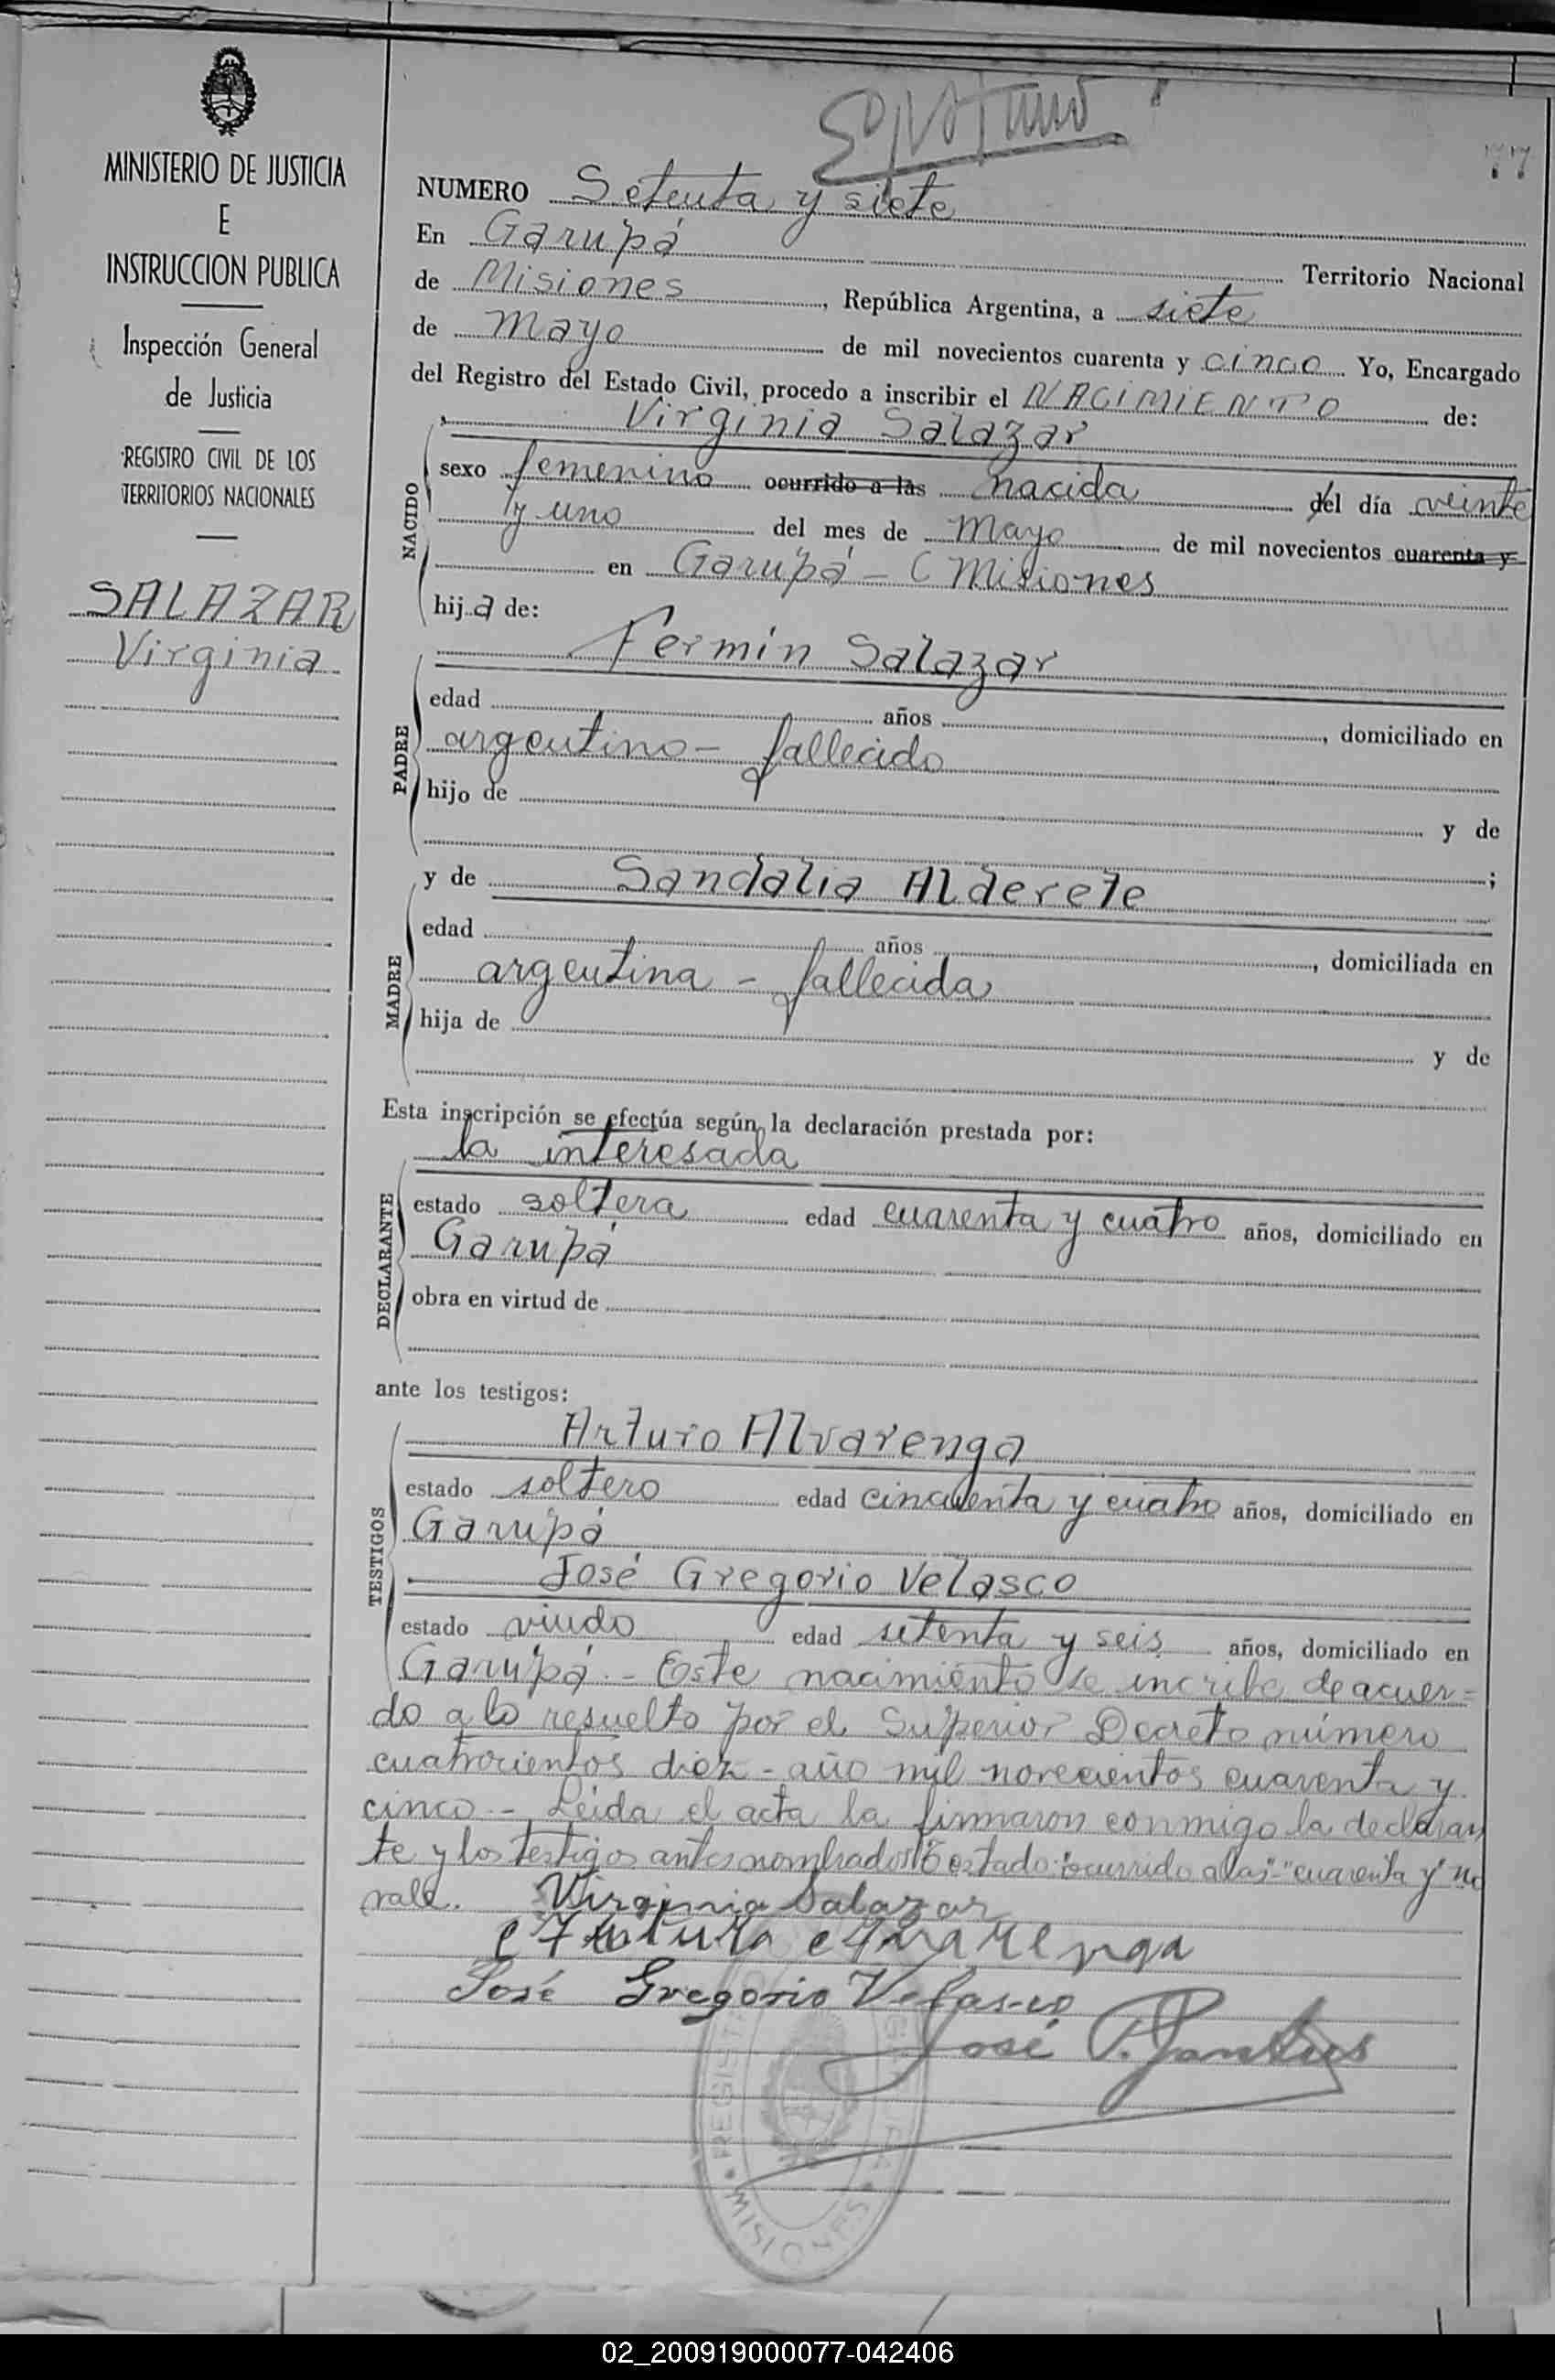 MINISTERIO DE JUSTICIA
E
INSTRUCCION PUBLICA
Inspección General
de Justicia
REGISTRO CIVIL DE LOS
TERRITORIOS NACIONALES
SALAZAR
Virginia
77
NUMERO Setenta y siete
En Garupá Territorio Nacional
de Misiones, República Argentina, a siete
de Mayo de mil novecientos cuarenta y cinco Yo, Encargado
del Registro del Estado Civil, procedo a inscribir el NACIMIENTO de:
NACIDO
Virginia Salazar
sexo femenino ocurrido a las nacida del día veinte
y uno del mes de Mayo de mil novecientos cuarenta y
en Garupá - (Misiones
hija de:
PADRE
Fermin Salazar
edad años, domiciliado en
argentino - fallecido
hijo de y de
;
MADRE
y de Sandalia Alderete
edad años, domiciliada en
argentina - fallecida
hija de y de
Esta inscripción se efectúa según la declaración prestada por:
DECLARANTE
la interesada
estado soltera edad cuarenta y cuatro años, domiciliado en
Garupá
obra en virtud de
ante los testigos:
TESTIGOS
Arturo Alvarenga
estado soltero edad cincuenta y cuatro años, domiciliado en
Garupá
José Gregorio Velasco
estado viudo edad setenta y seis años, domiciliado en
Garupá. - Este nacimiento se incribe de acuer=
do a lo resuelto por el Superior Decreto número
cuatrocientos diez - año mil novecientos cuarenta y
cinco. - Leida el acta la firmaron conmigo la declaran
te y los testigos antes nombrados estado: "ocurrido a las" - "cuarenta y" no
vale. Virginia Salazar
Arturo Alvarenga
José Gregorio Velasco
José P.
REGISTRO
MISIONES
02_200919000077-042406